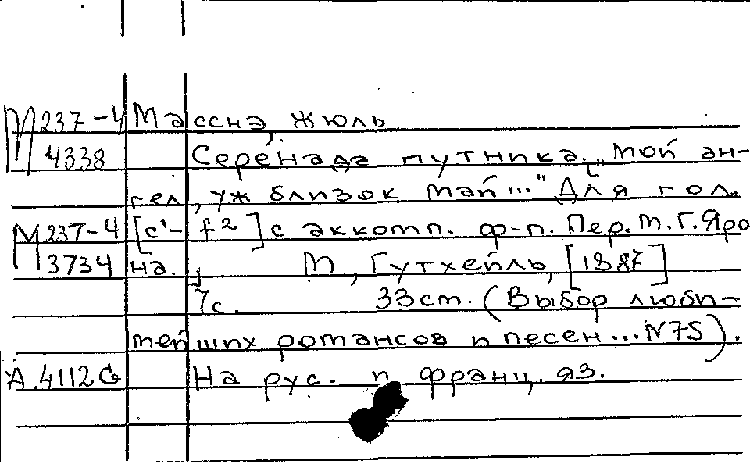 М 237-4 Массна, Жюль
4338 Серенада путника. "Мой ан-
гел, уж близок май..." Для гол.
М 237-4 [c'- f²] с аккомп. ф-п. Пер. М.Г. Яро
3734 на. М, Гутхейль, [1887]
7с. 33см. (Выбор люби-
мейших романсов и песен... N75).
А.4112G На рус. и франц. яз.